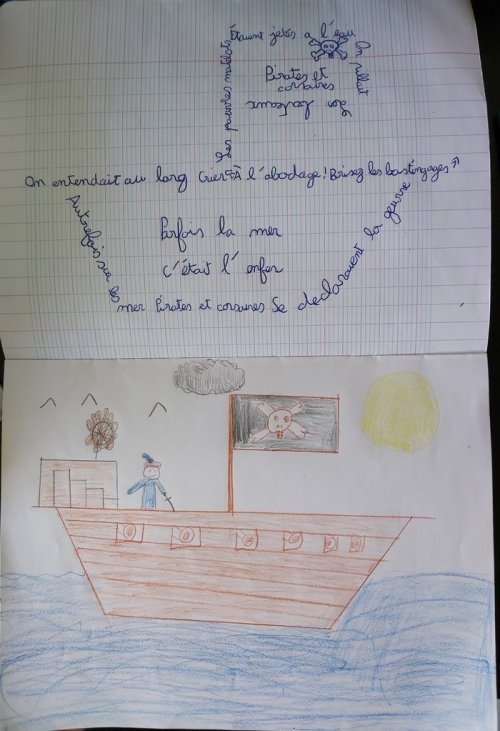 Les pauvres matelots
Étaient jetés a l'eau
On pillait
Pirates et
corsaires
On entendait au larg Crier "À l'abodage! Brisez les bastingages"
Autrefois sur les
mer Pirates et corsaires Se déclaraient la geurre
Parfois la mer
C'était l'enfer